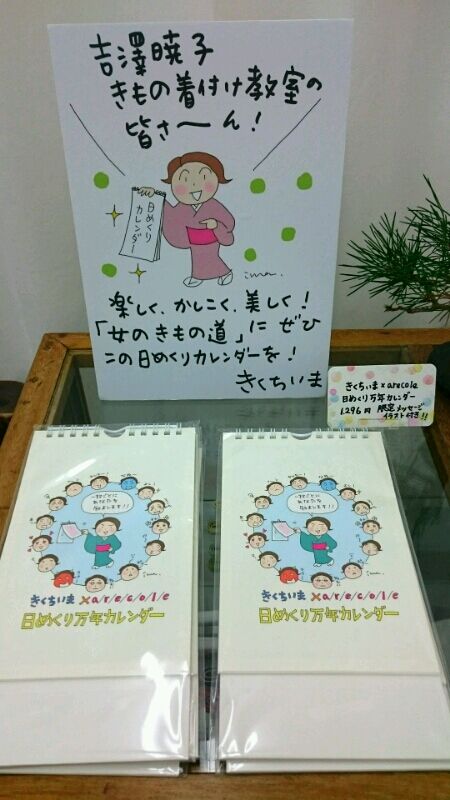 吉澤暁子
きもの着付け教室の
皆さ〜ん!
日めくり
カレンダー
ima.
楽しく、かしこく、美しく!
「女のきもの道」に ぜひ
この日めくりカレンダーを!
きくちいま
きくちいま×arecole
日めくり万年カレンダー
1,296円 限定メッセージ
イラスト付き!!
きくちいま×a/r/e/c/o/l/e
日めくり万年カレンダー
きくちいま×a/r/e/c/o/l/e
日めくり万年カレンダー